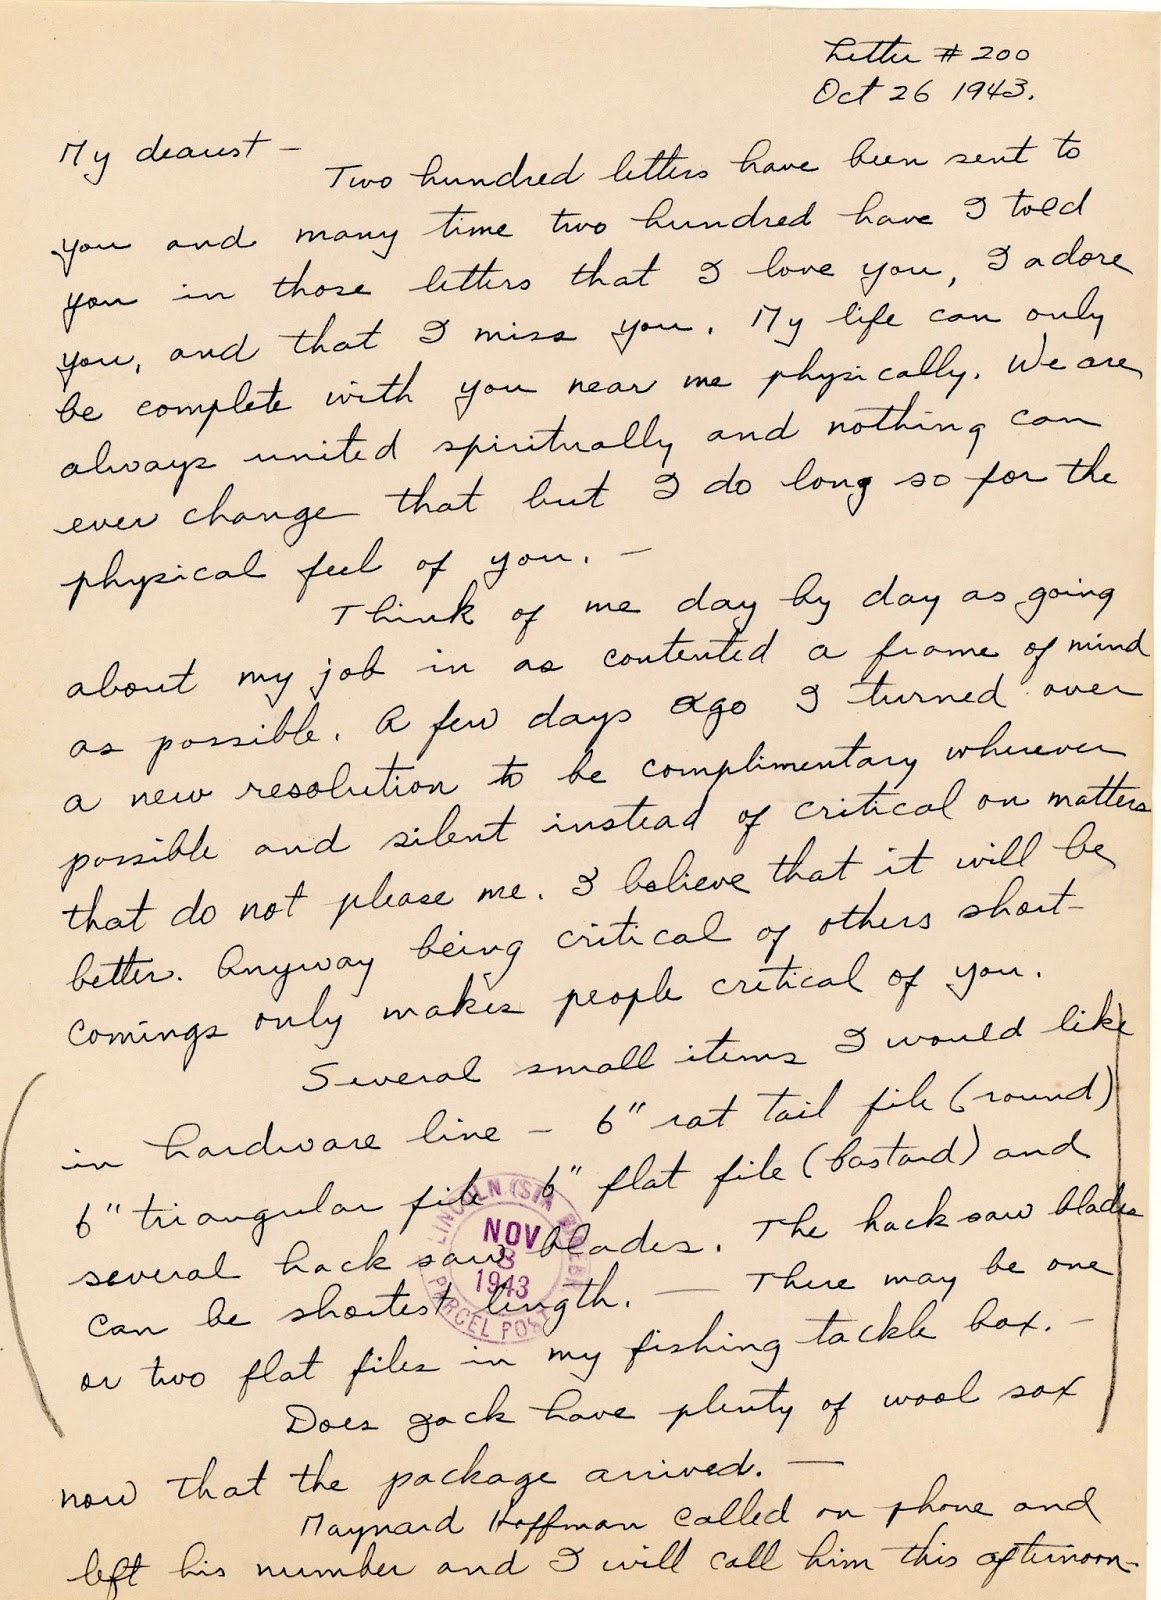 Letter # 200
Oct 26 1943.
My dearest —
Two hundred letters have been sent to
you and many time two hundred have I told
you in those letters that I love you, I adore
you, and that I miss you. My life can only
be complete with you near me physically. We are
always united spiritually and nothing can
ever change that but I do long so for the
physical feel of you. —
Think of me day by day as going
about my job in as contented a frame of mind
as possible. A few days ago I turned over
a new resolution to be complimentary wherever
possible and silent instead of critical on matters
that do not please me. I believe that it will be
better. Anyway being critical of others short-
comings only makes people critical of you.
Several small items I would like
in hardware line — 6" rat tail file (round)
6" triangular file 6" flat file (bastard) and
several hack saw blades. The hack saw blades
can be shortest length. — There may be one
or two flat files in my fishing tackle box. —
Does Jack have plenty of wool sox
now that the package arrived. —
Maynard Hoffman called on phone and
left his number and I will call him this afternoon-
LINCOLN
NOV
3
1943
PARCEL POST